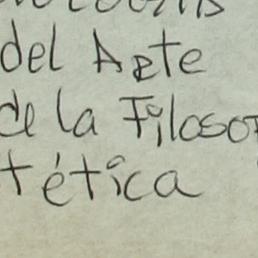 del Arte
de la Filoso
tética